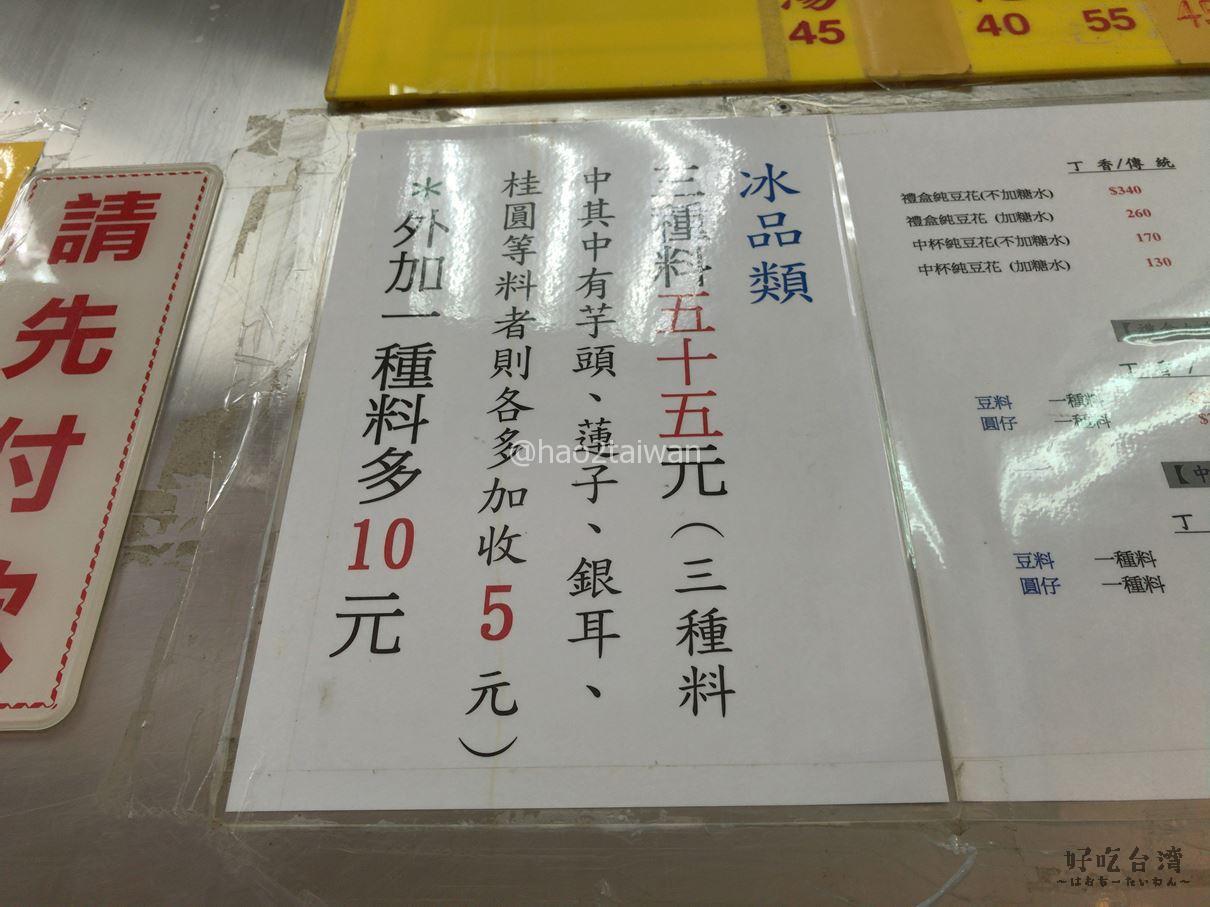 45
40
55
請先付款
冰品類
三種料五十五元(三種料
中其中有芋頭、蓮子、銀耳、
桂圓等料者則各多加收5元)
*外加一種料多10元
丁香/傳統
禮盒純豆花(不加糖水) $340
禮盒純豆花(加糖水) 260
中杯純豆花(不加糖水) 170
中杯純豆花(加糖水) 130
豆料 一種料
圓仔 一種料
【中
丁
豆料 一種料
圓仔 一種料
@hao2taiwan
好吃台湾
~はおちーたいわん~